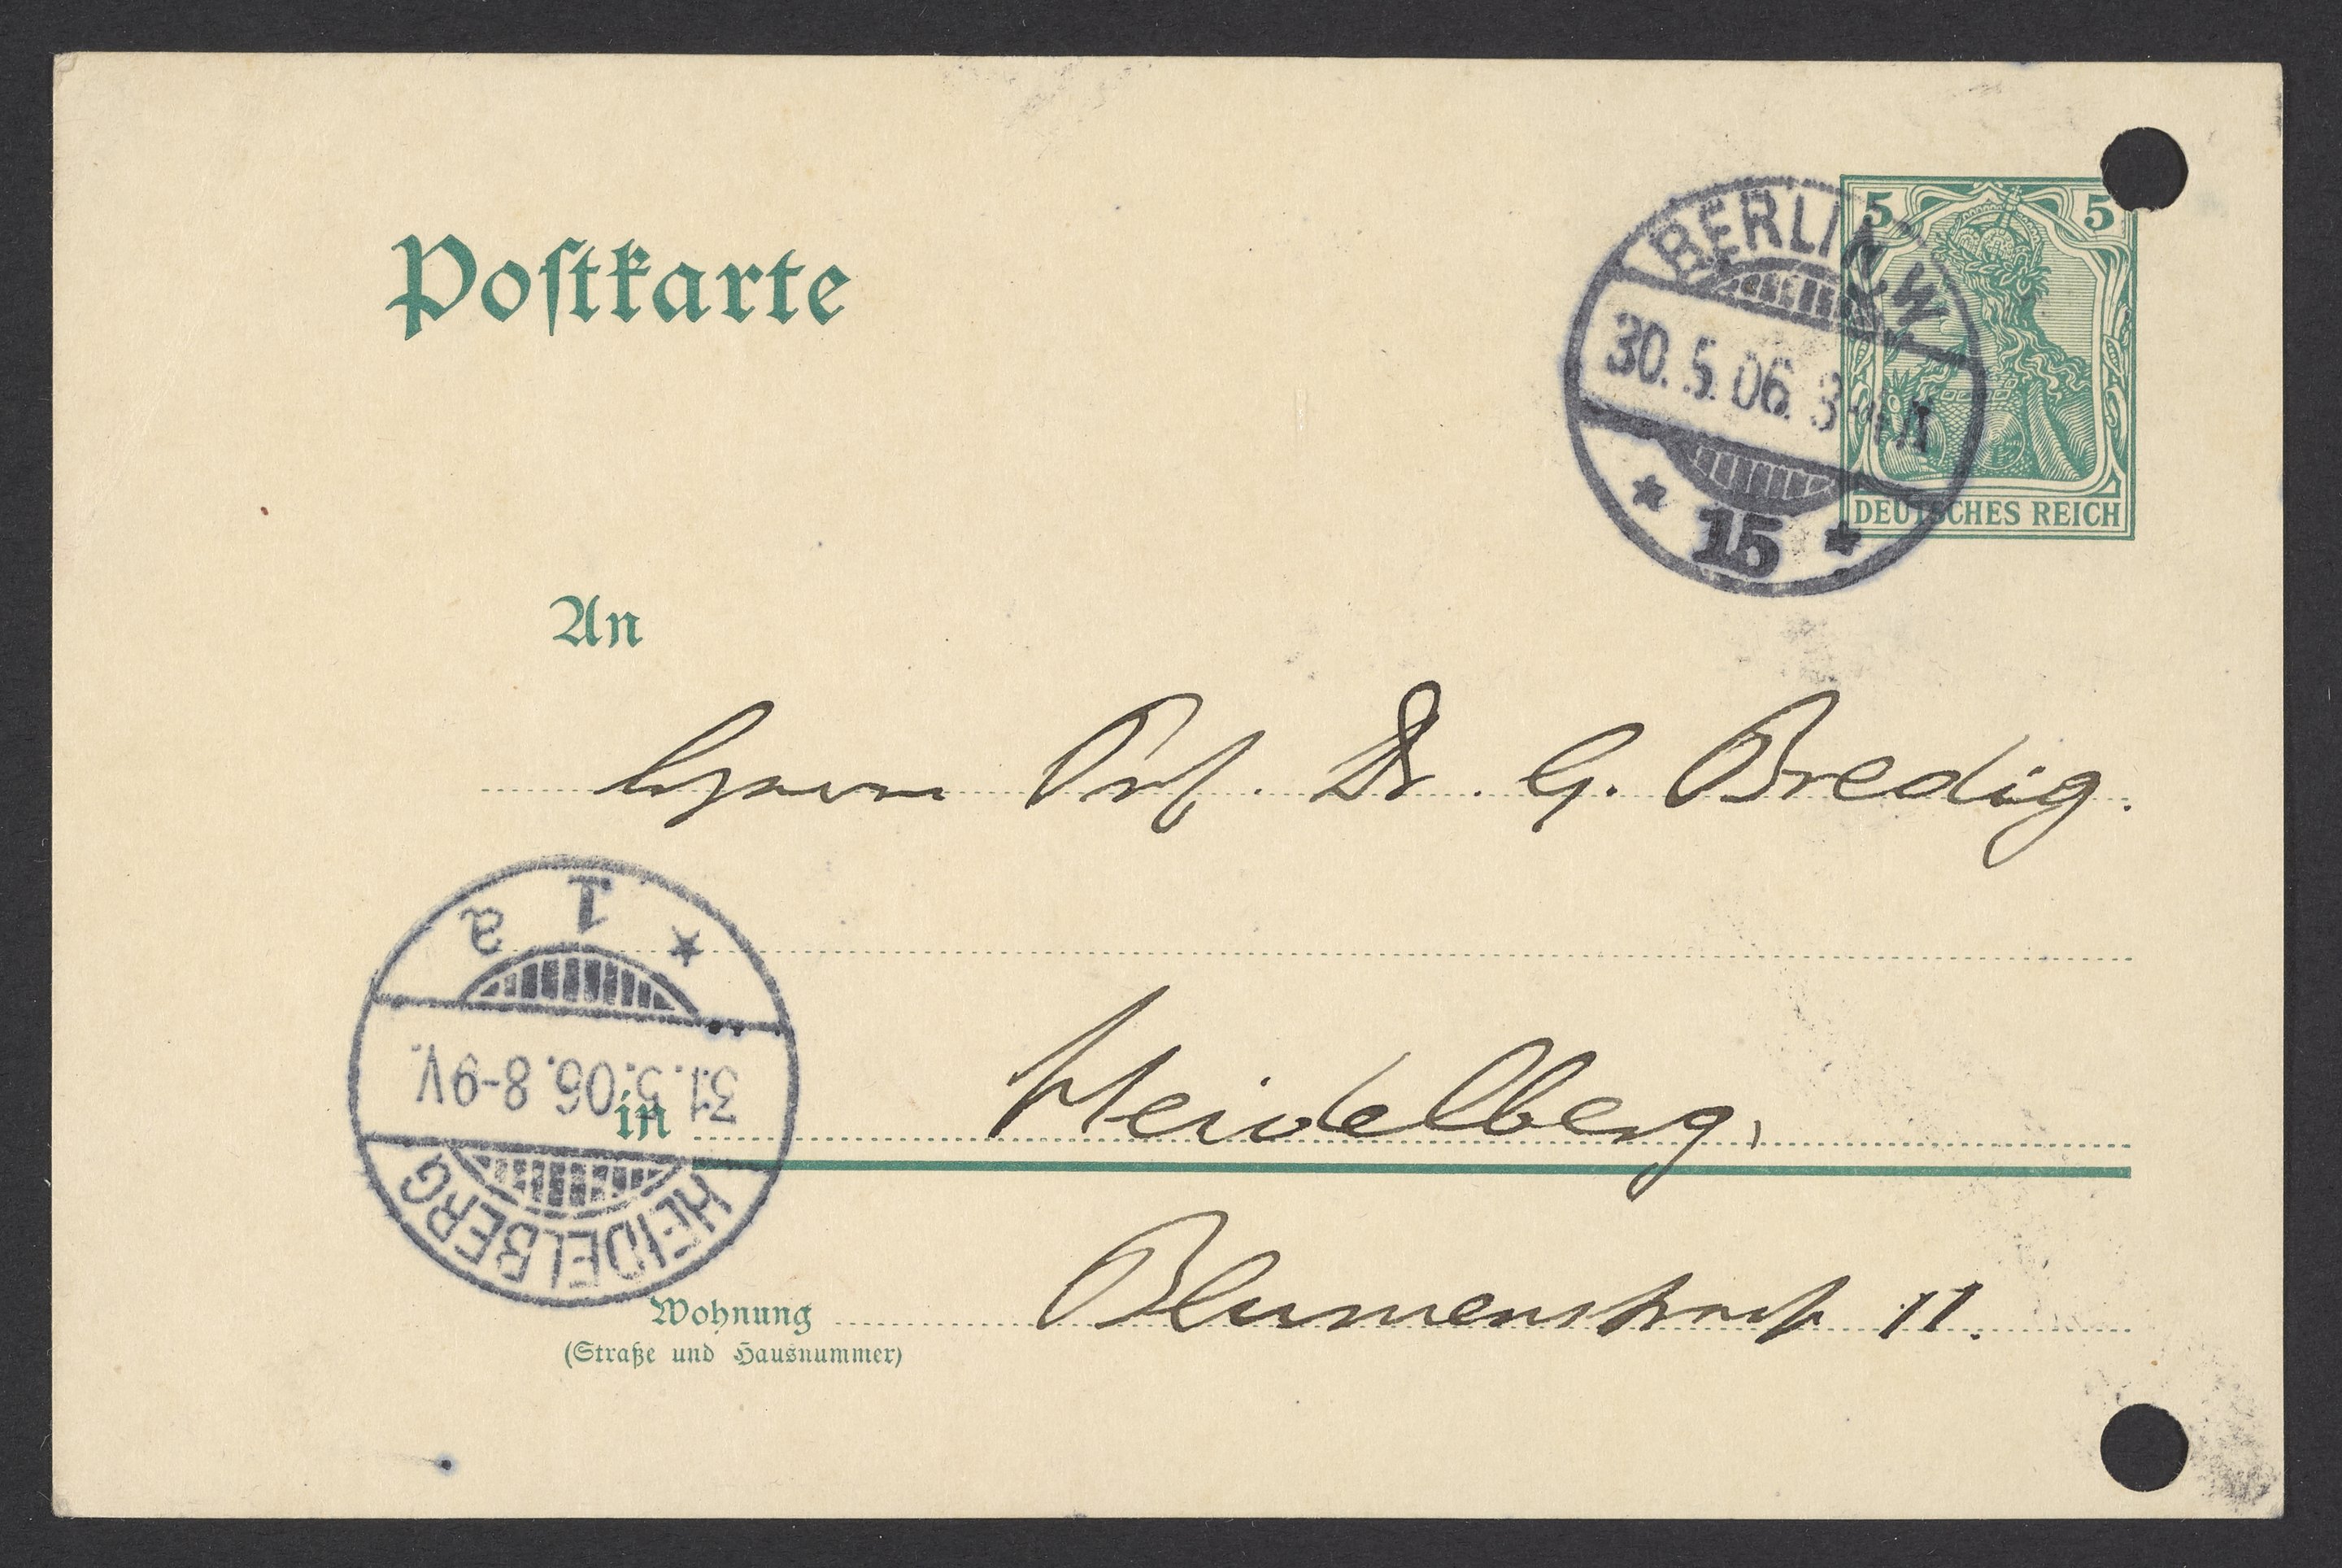 Postkarte
5 5
BERLIN W
30. 5. 06. 3-4 N
* 15 *
DEUTSCHES REICH
An
Herrn Prof. Dr. G. Bredig.
in Heidelberg,
Wohnung Blumenstrasse 11.
(Straße und Hausnummer)
HEIDELBERG
31.5.06. 8-9V.
* 1 a